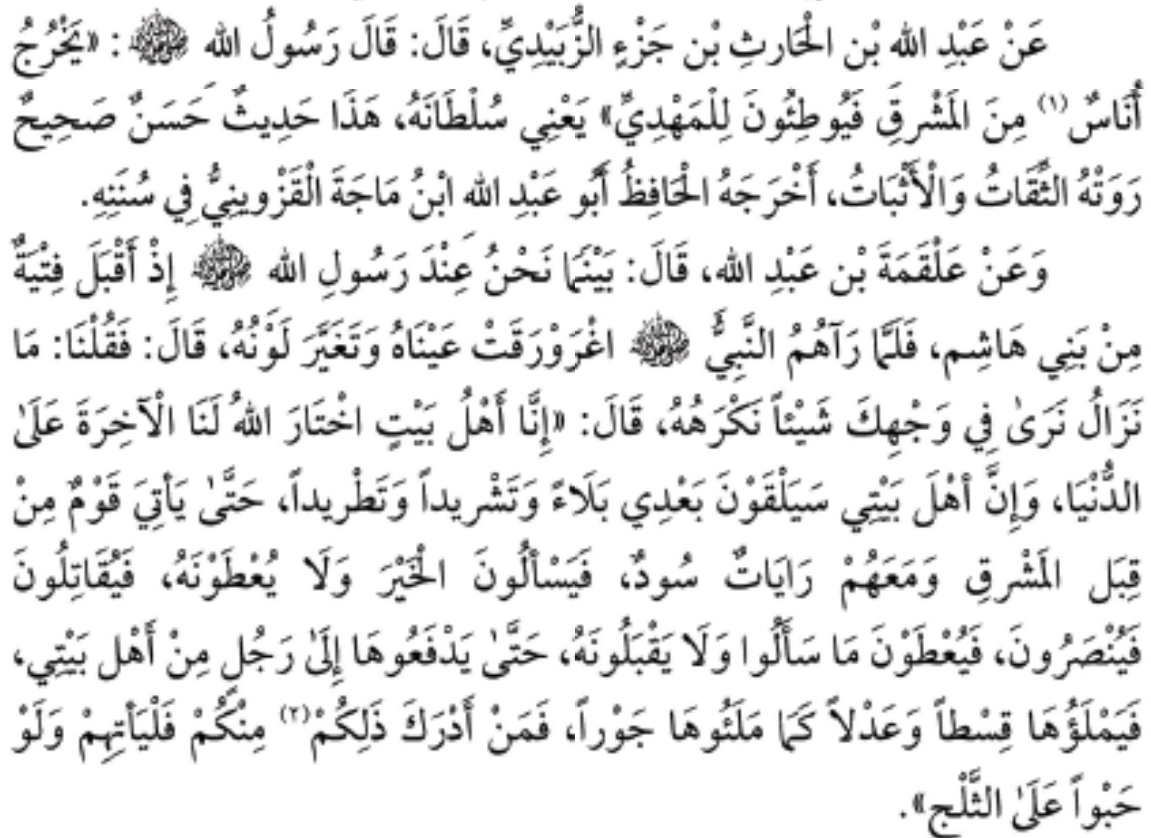 عَنْ عَبْدِ الله بْنِ الْحَارِثِ بْنِ جَزْءٍ الزُّبَيْدِيِّ، قَالَ: قَالَ رَسُولُ الله ﷺ: «يَخْرُجُ
أُنَاسٌ(١) مِنَ المَشْرِقِ فَيُوطِئُونَ لِلْمَهْدِيِّ» يَعْنِي سُلْطَانَهُ، هَذَا حَدِيثٌ حَسَنٌ صَحِيحٌ
رَوَتْهُ الثِّقَاتُ وَالْأَثْبَاتُ، أَخْرَجَهُ الْحَافِظُ أَبُو عَبْدِ الله ابْنُ مَاجَةَ الْقَزْوِينِيُّ فِي سُنَنِهِ.
وَعَنْ عَلْقَمَةَ بْنِ عَبْدِ الله، قَالَ: بَيْنَمَا نَحْنُ عِنْدَ رَسُولِ الله ﷺ إِذْ أَقْبَلَ فِتْيَةٌ
مِنْ بَنِي هَاشِمٍ، فَلَمَّا رَآهُمُ النَّبِيُّ ﷺ اغْرَوْرَقَتْ عَيْنَاهُ وَتَغَيَّرَ لَوْنُهُ، قَالَ: فَقُلْنَا: مَا
نَزَالُ نَرَىٰ فِي وَجْهِكَ شَيْئاً نَكْرَهُهُ، قَالَ: «إِنَّا أَهْلُ بَيْتٍ اخْتَارَ اللهُ لَنَا الْآخِرَةَ عَلَىٰ
الدُّنْيَا، وَإِنَّ أَهْلَ بَيْتِي سَيَلْقَوْنَ بَعْدِي بَلَاءً وَتَشْرِيداً وَتَطْرِيداً، حَتَّىٰ يَأتِيَ قَوْمٌ مِنْ
قِبَلِ المَشْرِقِ وَمَعَهُمْ رَايَاتٌ سُودٌ، فَيَسْألُونَ الْخَيْرَ وَلَا يُعْطَوْنَهُ، فَيُقَاتِلُونَ
فَيُنْصَرُونَ، فَيُعْطَوْنَ مَا سَأَلُوا وَلَا يَقْبَلُونَهُ، حَتَّىٰ يَدْفَعُوهَا إِلَىٰ رَجُلٍ مِنْ أَهْلِ بَيْتِي،
فَيَمْلَؤُهَا قِسْطاً وَعَدْلاً كَمَا مَلَئُوهَا جَوْراً، فَمَنْ أَدْرَكَ ذَلِكُمْ(٢) مِنْكُمْ فَلْيَأتِهِمْ وَلَوْ
حَبْواً عَلَىٰ الثَّلْجِ».